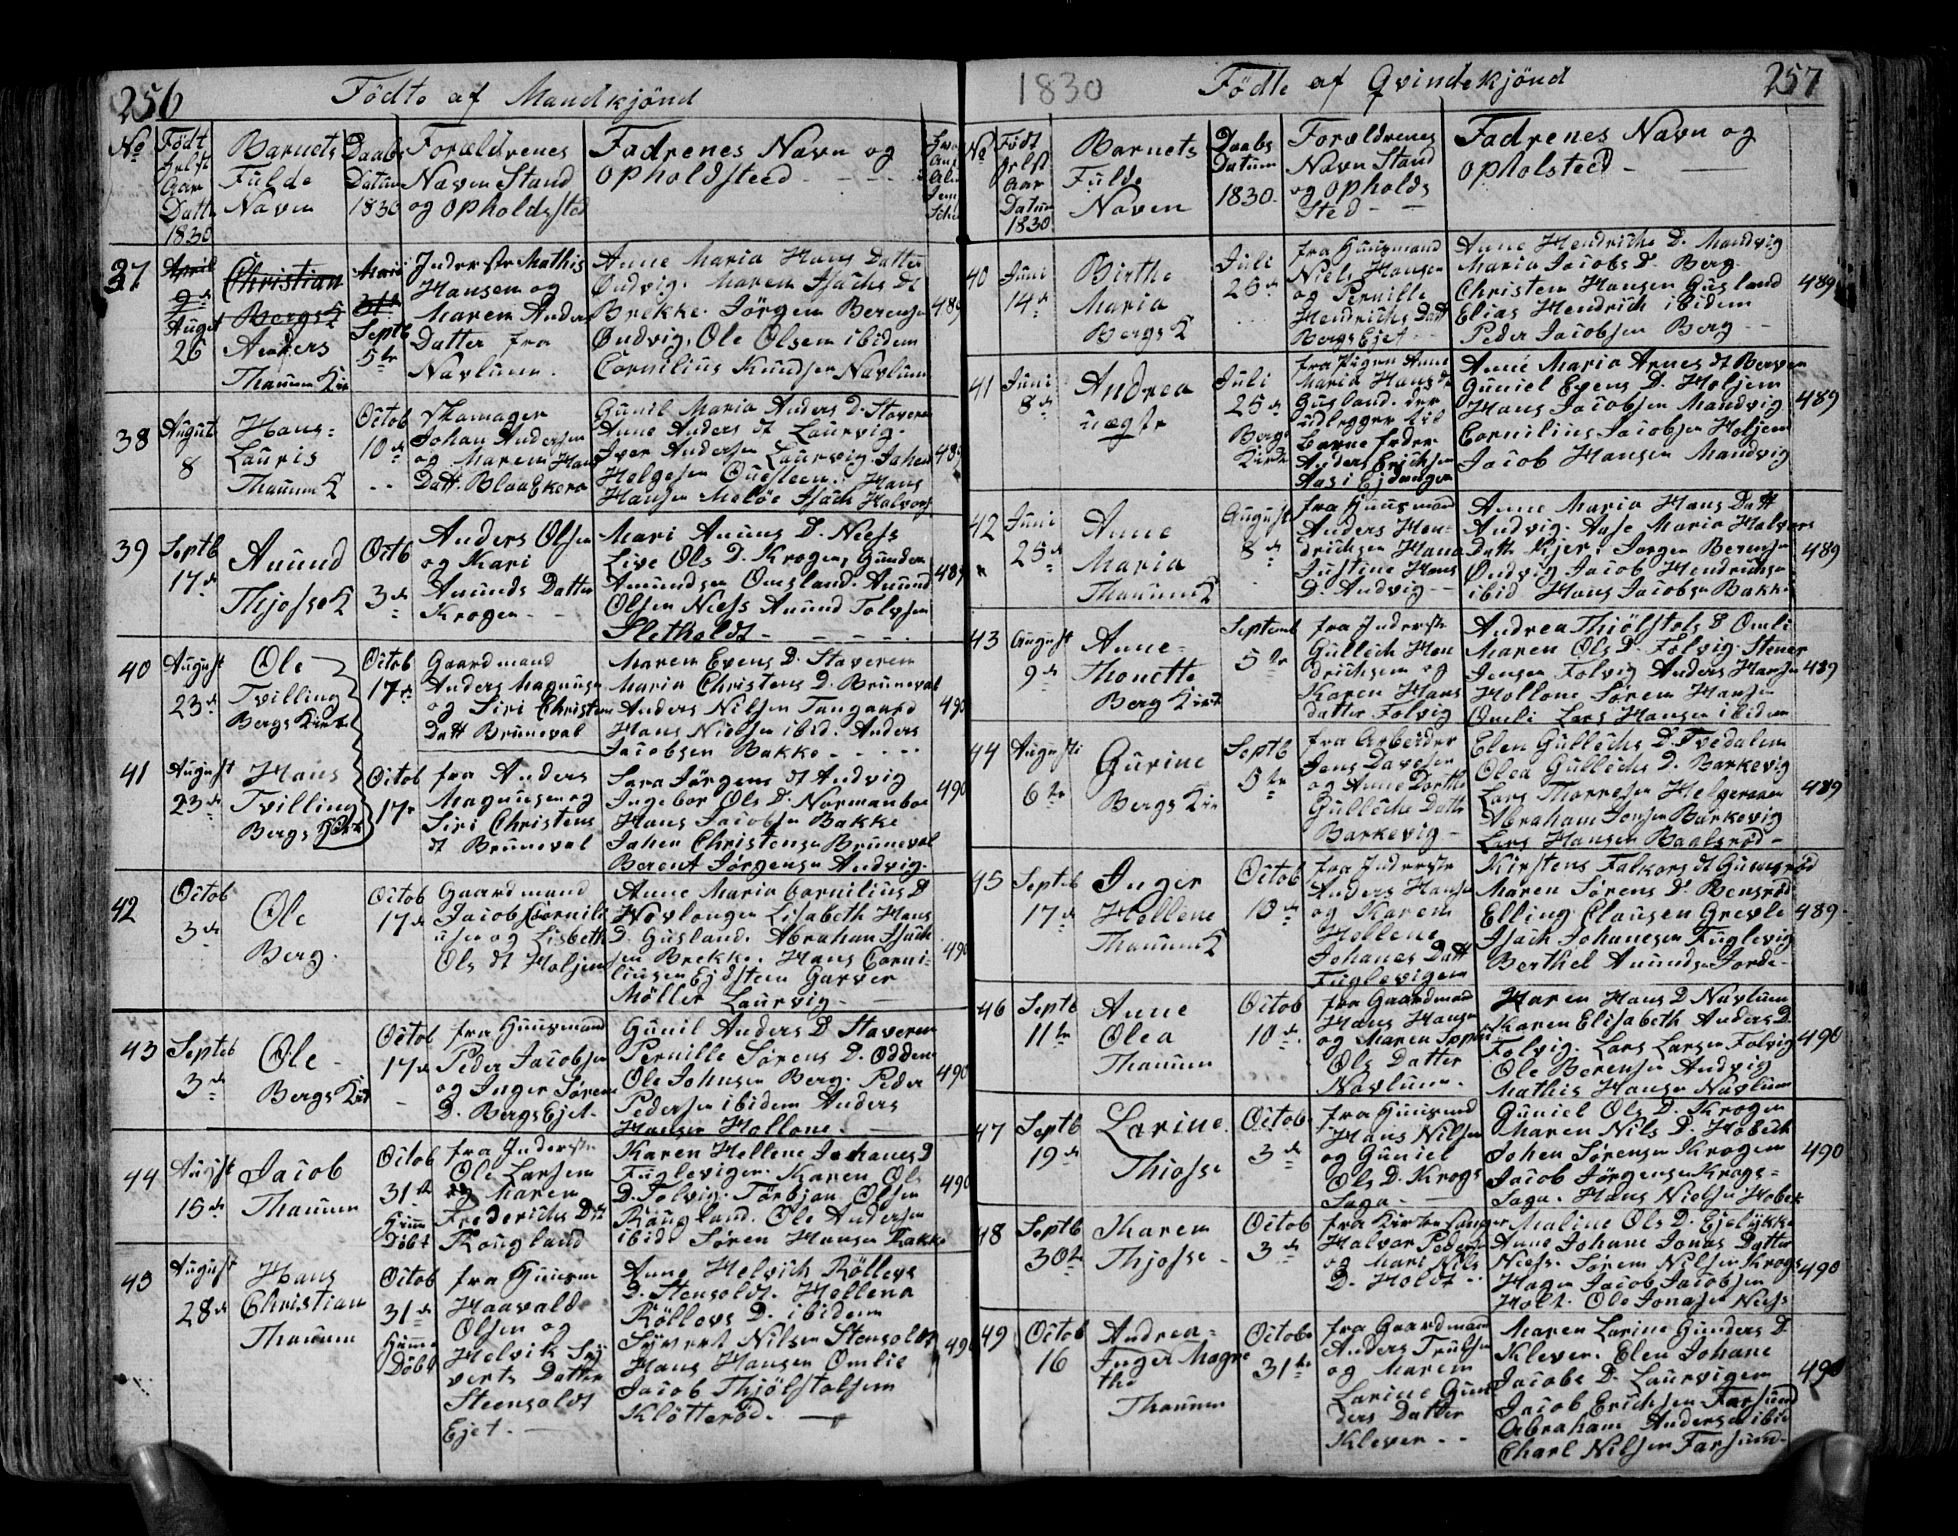 256
Födte af Mandkjönd
No
Födt
Aar
Datu
1830
Barnets
Fulde
Navn
Daabs
Datum
1830
Forældrenes
Navn Stand
og Opholdssted
Fadrenes Navn og
Opholdsteed
37
April
9de
August
26
Christian
Bergs K
Anders
Thanum Kir
Maii
31te
Septb
5te
Inderste Mathis
Hansen og
Maren Anders
Datter fra
Navlum.
Anne Maria Hans Datter
Øndvig. Maren Isachs Dt
Brekke. Jörgen Berensen
Øndvig, Ole Olsen ibidem
Cornilius Knudsen Navlum
489
38
August
8
Hans=
Lauris
Thanum K
Octob
10de
Skomager
Johan Andersen
og Maren Hans
Datt. Blaaekern
Gunil Maria Anders D. Stavern
Anne Anders dt Laurvig.
Iver Andersen Laurvig. Johan
Helgesen Hans
Hansen Melöe Isach Halvors
489
39
Septb
17de
Anund
Thjosse K
Octb
3de
Anders Olsen
og Kari
Anunds Datter
Krogen
Mari Anuns D. Næss
Live Ols D. Krogen, Gunder
Amundsen Omsland. Anund
Olsen Næss Anund Tolvsen
Sletholdt
489
40
August
23de
Ole
Tvilling
Bergs Kirke
Octob
17de
Gaardmand
Anders Magnusen
og Siri Christens
Datt Bruneval
Maren Evens D. Staveren
Maria Christens D. Bruneval
Anders Nilsen Tangaard
Hans Nielsen ibid. Anders
Jacobsen Bakke
490
41
August
23de
Hans
Tvilling
Bergs Kirke
Octob
17e
fra Anders
Magnusen og
Siri Christens
dt Bruneval
Sara Jörgens dt Andvig
Ingebor Ols D. Normanboe
Hans Jacobsen Bakke
Johan Christensen Bruneval
Berent Jörgensen Andvig.
490
42
Octob
3de
Ole
Berg.
Octob
17de
Gaardmand
Jacob Cornili
usen og Lisbeth
Ols dt Holjem
Anne Maria Cornilius D
Havlangen Lisabeth Hans
D. Gusland. Abraham Isach
sen Brekke. Hans Corni-
liusen Ejdsten Garver
Möller Laurvig
490
43
Septeb
3de
Ole
Bergs Kirk
Octob
17de
fra Huusmand
Peder Jacobsen
og Inger Sörens
D. Bergs Ejet
Gunil Anders D Staveren
Pernille Sörens D. Odden
Ole Johnsen Berg. Peder
Pedersen ibidem Anders
Hansen Hollone.
490
44
August
15de
Jacob
Thanum
Octob
31te
Hiem
Döbt
fra Inderste
Ole Larsen
og Maren
Frederichs Dtt
Rougland
Karen Hellene Johanes D
Fuglevigen. Karen Ols
D. Folvig. Torbjön Olsen
Rougland. Ole Andersen
ibid. Sören Hansen Rakke
490
45
August
28de
Hans
Christian
Thanum
Octob
31de
Hiem
Döbt
fra Huusm
Haavald
Olsen og
Helvik Sy
verts Datter
Steensoldt
Ejet.
Anne Helvich Röllevs
D. Stensoldt. Hellena
Röllovs D. ibidem
Syvert Nilsen Stensoldt
Hans Hansen Omlie
Jacob Thjölstolsen
Klötteröd.
490
1830
Födte af Qvindekjönd
257
No
Födt
Aar
Datum
1830
Barnets
Fulde
Navn
Daabs
Datum
1830.
Forældrenes
Navn Stand
og Opholds
Sted
Fadrenes Navn og
Opholsteed
40
Juni
14de
Birthe
Maria
Bergs K
Juli
25de
fra Huusmand
Niels Hansen
og Pernille
Hendrichs Datt
Bergs Ejet
Anne Hendrichs D. Mandvig
Maria Jacobs D. Berg
Christen Hansen Gusland
Elias Hendrich ibidem
Peder Jacobsen Berg
489
41
Juni
8de
Andrea
uægte
Juli
25de
Bergs
Kirke
fra Pigen Anne
Maria Hans D
Gusland. der
udlegger til
Barne fader
Anders Erichsen
Aas i Ejdanger
Anne Maria Arnes dt Berven
Guniel Evens D. Holjem
Hans Jacobsen Mandvig
Cornilius Jacobsen Holjem
Jacob Hansen Mandvig
489
42
Juni
25de
Anne
Maria
Thanum K
August
8de
fra Huusmand
Anders Hen-
drichsen Hana
Justine Hans
D. Andvig
Anne Maria Hans Datt
Andvig. Aase Maria Halvors
Datt. Kjer. Jorgen Berensen
Øndvig Jacob Hendrichsen
ibid Hans Jacobsen Bakke
489
43
August
9de
Anne-
Thonette
Berg Kirk
Septemb
5te
fra Inderste
Gullich Hen
drichsen og
Karen Hans
datter Folvig
Andrea Thjölstols D Omli
Maren Ols D. Folvig. Stener
Jensen Folvig Anders Hansen
Hollone Sören Hansen
Omli Lars Hansen ibidem
489
44
Augusti
6te
Gurine
Bergs Kir
Septb
5te
fra Arbeider
Jens Davesen
og Anne Dorthe
Gulliche Datt
Barkevig
Elen Gullichs D. Tvedalen
Olea Gullichs D. Barkevig
Lars Thorresen Helgeraaen
Abraham Jensen Barkevig
Lars Hansen Baatsröd
489
45
Septeb
17de
Inger
Hellene
Thanum K
Octob
10de
fra Inderste
Anders Hansen
og Karen
Hellene
Johanes Datt
Fuglevigen
Kirstens Falkors dt Gumsröd
Maren Sörens D. Bensröd
Elling Clausen Grevle
Isach Johanesen Fuglevig
Berthel Anundsen Jorde
489
46
Septb
11te
Anne
Olea
Thanum
Octob
10de
fra Gaardmand
Hans Hansen
og Maren Sophi
Ols Datter
Navlum.
Maren Hans D Navlum
Karen Elisabeth Anders D.
Folvig. Lars Larsen Folvig
Ole Berensen Andvig
Mathis Hansen Navlum
490
47
Septb
19de
Larine.
Thiosse
Octob
3de
fra Huusmd
Hans Nilsen
og Guniel
Ols D. Krogs
Saga
Guniel Ols D. Krogen
Maren Nils D. Hobeck
Johen Sörensen Krogen
Jacob Jörgensen Krogs=
Saga. Hans Nielsen Hobek
490
48
Septb
30te
Karen
Thjosse
Octob
3de
fra Kirkesanger
Halvor Pedersen
og Mari Nils
D. Holdt
Maline Ols D. Ejelykke
Anne Johane Jonas Datter
Næss. Sören Nilsen Krogs
Hagen Jacob Jacobsen
Holt. Ole Jonasen Næss
490
49
Octob
16
Andrea=
Inger Magre
the
Thanum
Octob
31te
fra Gaardmand
Anders Trulsen
og Maren
Larine Gun
ders Datter
Kleven
Maren Larine Gunders D.
Kleven. Elen Johane
Jacobs D. Laurvigen
Jacob Erichsen Farsund
Abraham Andersen ibid
Charl Nilsen Farsund
490